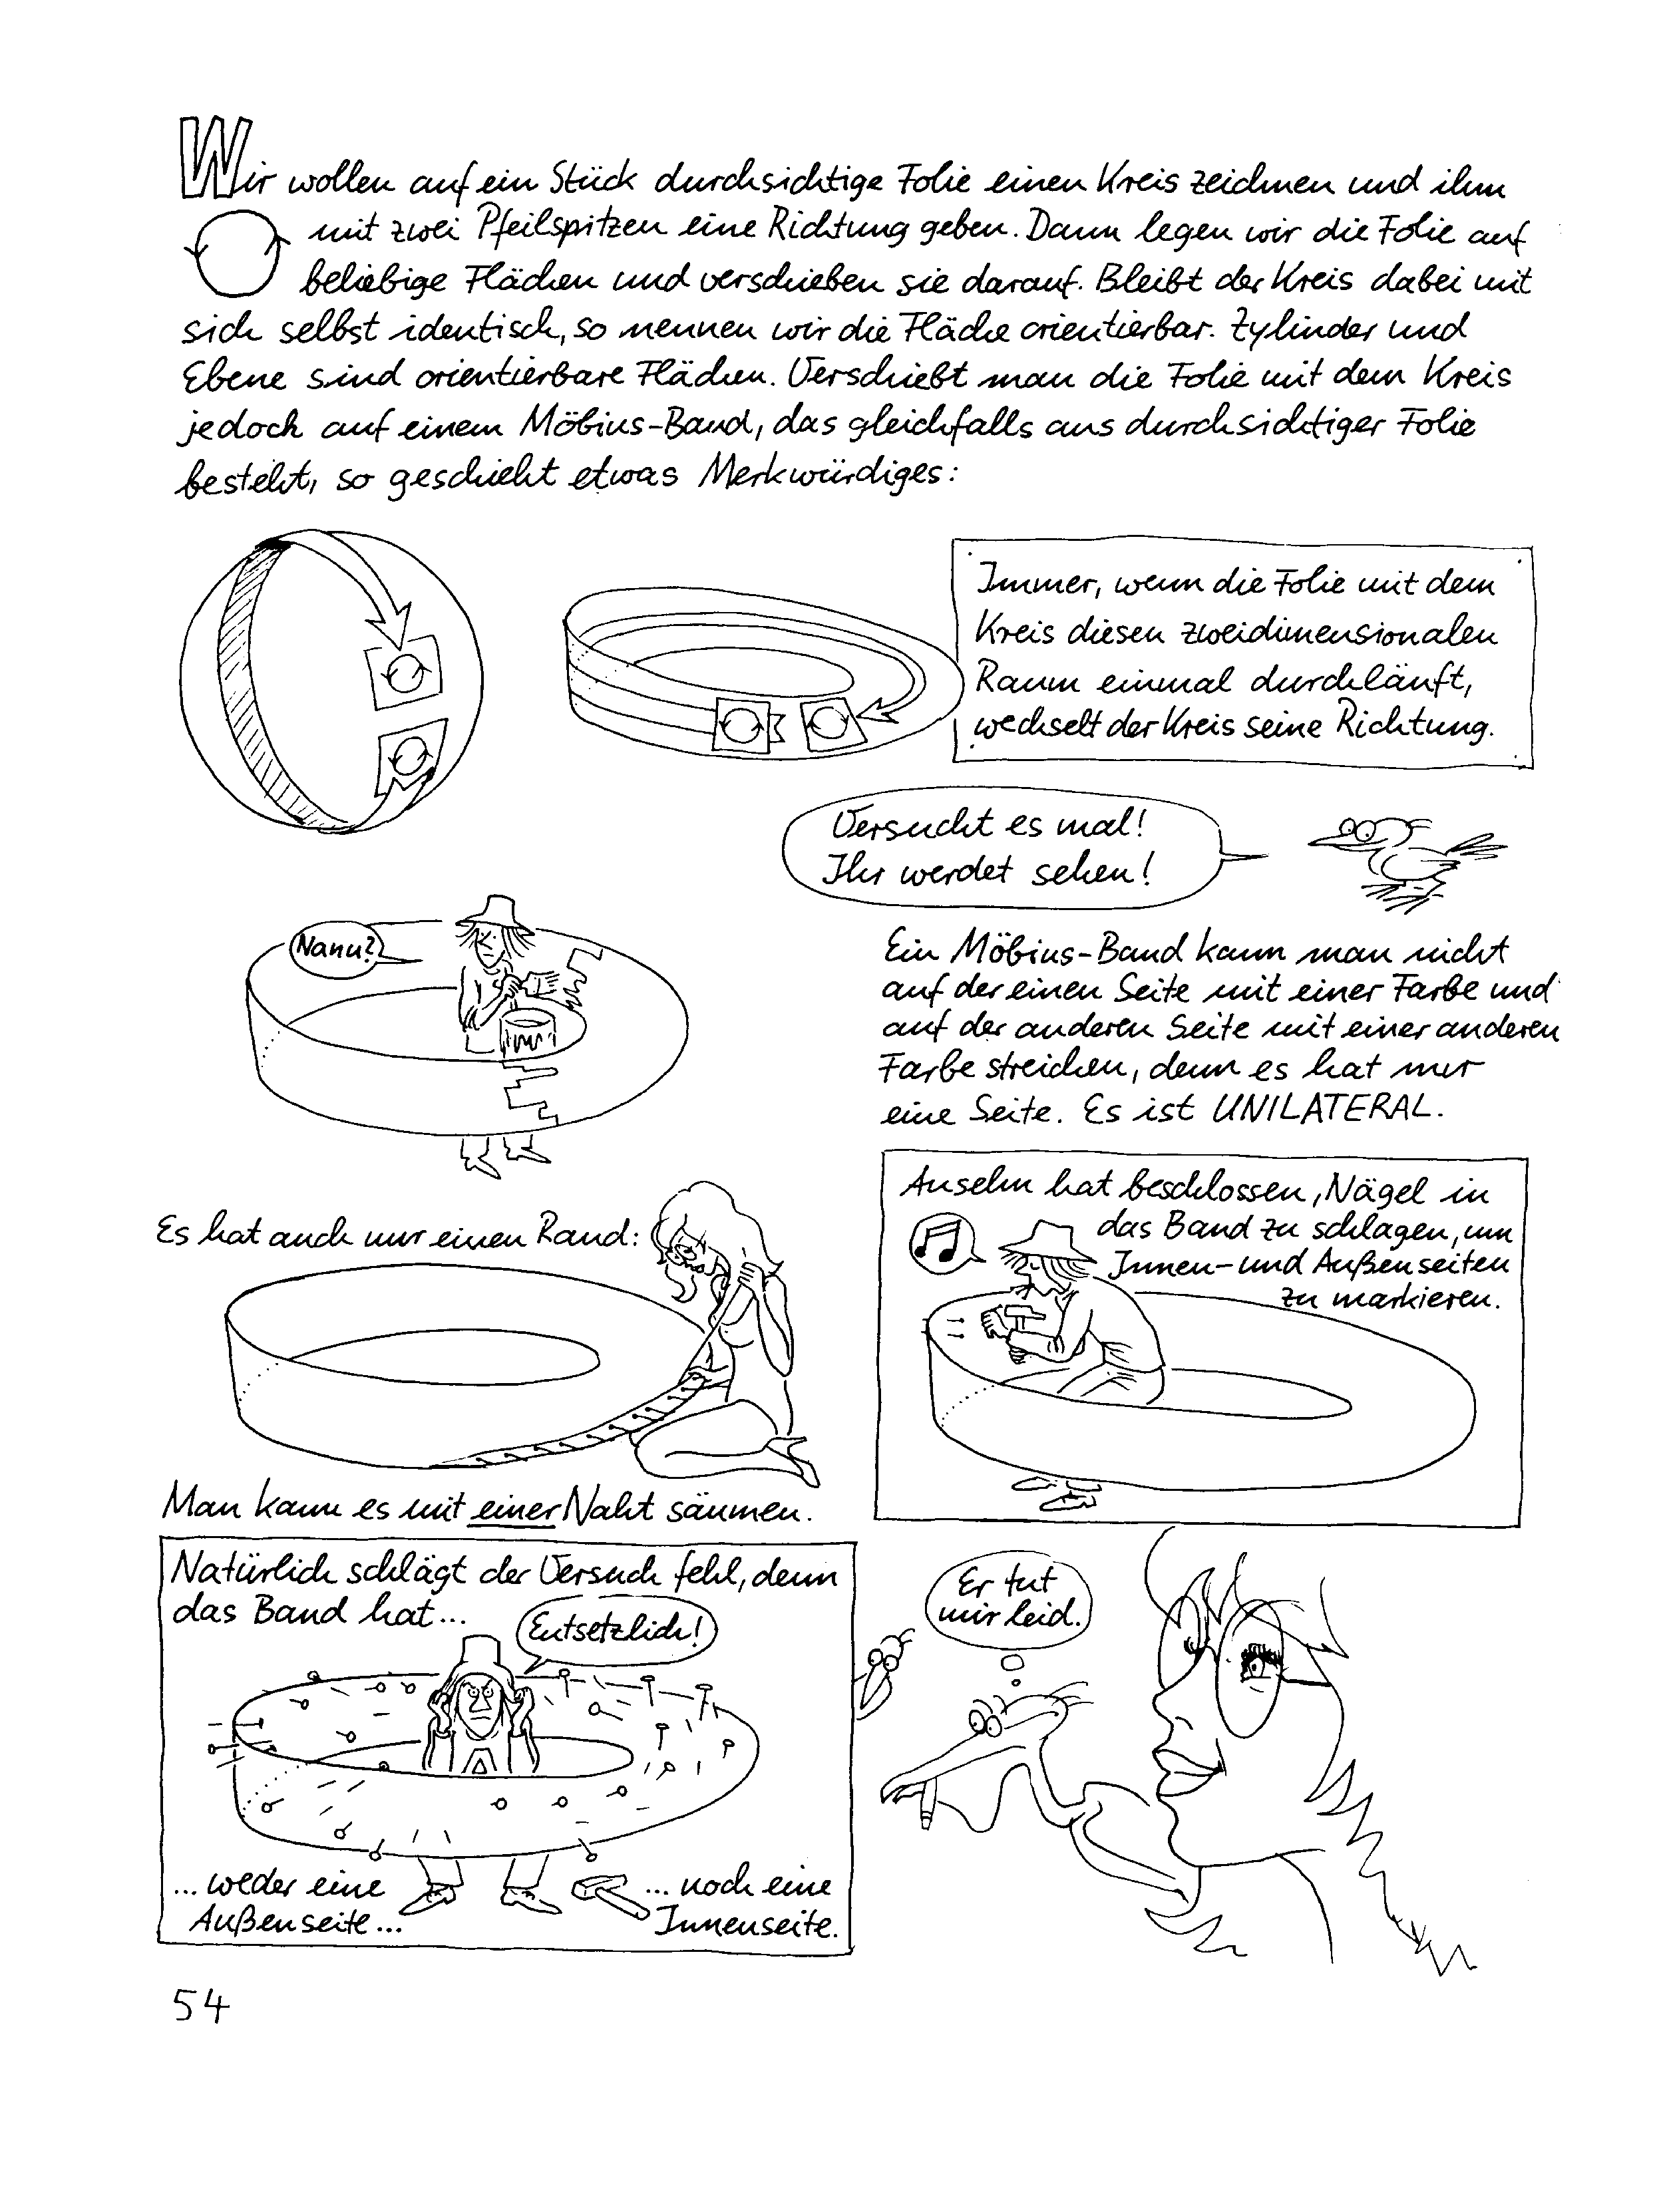 Wir wollen auf ein Stück durchsichtige Folie einen Kreis zeichnen und ihm
mit zwei Pfeilspitzen eine Richtung geben. Dann legen wir die Folie auf
beliebige Flächen und verschieben sie darauf. Bleibt der Kreis dabei mit
sich selbst identisch, so nennen wir die Fläche orientierbar. Zylinder und
Ebene sind orientierbare Flächen. Verschiebt man die Folie mit dem Kreis
jedoch auf einem Möbius-Band, das gleichfalls aus durchsichtiger Folie
besteht, so geschieht etwas Merkwürdiges:
Immer, wenn die Folie mit dem
Kreis diesen zweidimensionalen
Raum einmal durchläuft,
wechselt der Kreis seine Richtung.
Versucht es mal!
Ihr werdet sehen!
Nanu?
Ein Möbius-Band kann man nicht
auf der einen Seite mit einer Farbe und
auf der anderen Seite mit einer anderen
Farbe streichen, denn es hat nur
eine Seite. Es ist UNILATERAL.
Es hat auch nur einen Rand:
Man kann es mit einer Naht säumen.
Anselm hat beschlossen, Nägel in
das Band zu schlagen, um
Innen- und Außenseiten
zu markieren.
Natürlich schlägt der Versuch fehl, denn
das Band hat...
Entsetzlich!
... weder eine
Außenseite...
... noch eine
Innenseite.
Er tut
mir leid.
54